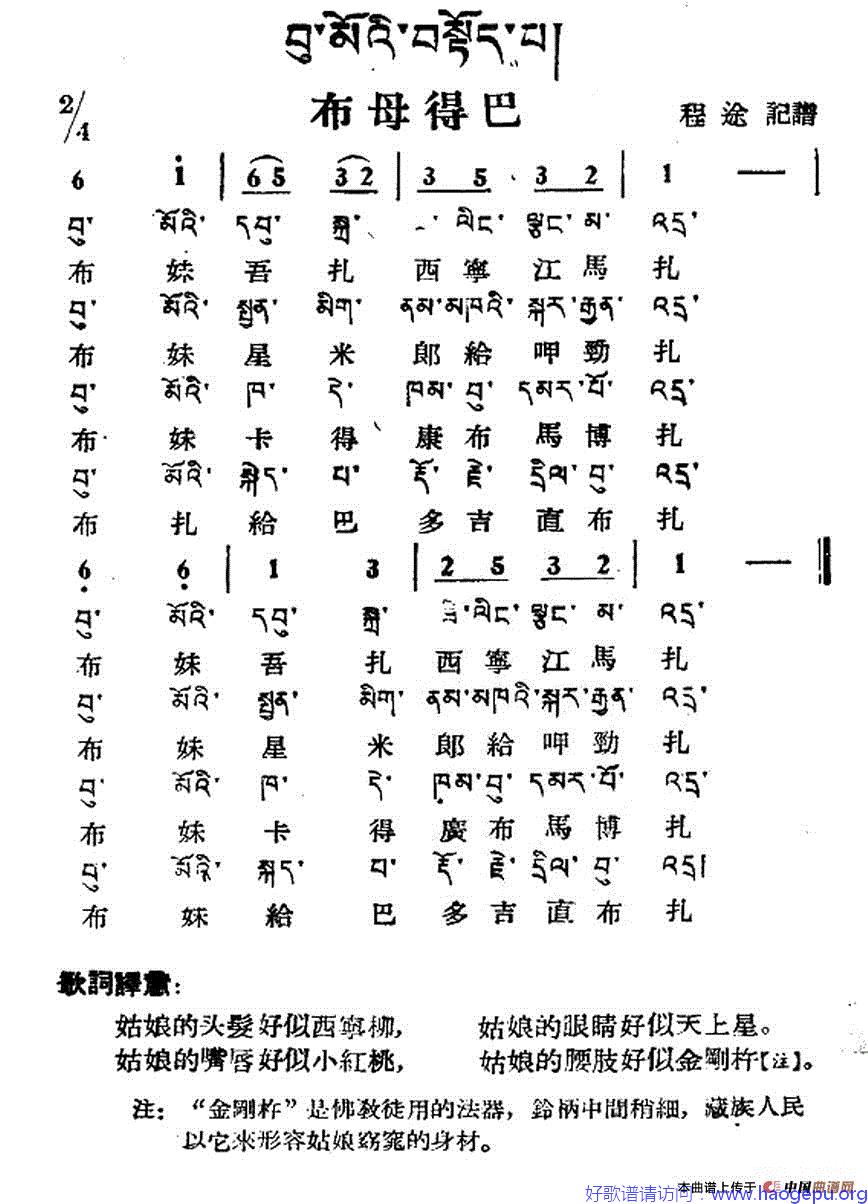 བུ་མོའི་བསྟོད་པ།
布母得巴
2/4
程途 記譜
6 i | 6 5 3 2 | 3 5 3 2 | 1 — |
བུ་ མོའི་ དབུ་ སྐྲ་ ལིང་ ལྕང་ མ་ འདྲ་
布 妹 吾 扎 西 寧 江 馬 扎
བུ་ མོའི་ སྤྱན་ མིག་ ནམ་མཁའི་ སྐར་རྒྱན་ འདྲ་
布 妹 星 米 郞 給 呷 勁 扎
བུ་ མོའི་ ཁ་ དེ་ ཁམ་བུ་ དམར་པོ་ འདྲ་
布 妹 卡 得 康 布 馬 博 扎
བུ་ མོའི་ སྐེད་ པ་ རྡོ་ རྗེ་ དྲིལ་བུ་ འདྲ་
布 扎 給 巴 多 吉 直 布 扎
6 6 | 1 3 | 2 5 3 2 | 1 — ‖
བུ་ མོའི་ དབུ་ སྐྲ་ ལིང་ ལྕང་ མ་ འདྲ་
布 妹 吾 扎 西 寧 江 馬 扎
བུ་ མོའི་ སྤྱན་ མིག་ ནམ་མཁའི་སྐར་རྒྱན་ འདྲ་
布 妹 星 米 郞 給 呷 勁 扎
བུ་ མོའི་ ཁ་ དེ་ ཁམ་བུ་ དམར་པོ་ འདྲ་
布 妹 卡 得 廣 布 馬 博 扎
བུ་ མོའི་ སྐད་ པ་ རྡོ་ རྗེ་ དྲིལ་ བུ་ འདྲ།
布 妹 給 巴 多 吉 直 布 扎
歌詞譯意：
姑娘的头髮好似西寧柳， 姑娘的眼睛好似天上星。
姑娘的嘴唇好似小紅桃， 姑娘的腰肢好似金剛杵【注】。
注：“金剛杵”是佛教徒用的法器，鈴柄中間稍細，藏族人民
以它来形容姑娘窈窕的身材。
本曲谱上传于 中国曲谱网
好歌谱请访问：www.haogepu.org